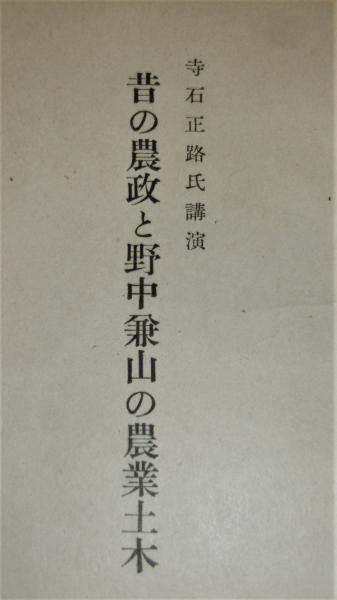 寺石正路氏講演
昔の農政と野中兼山の農業土木